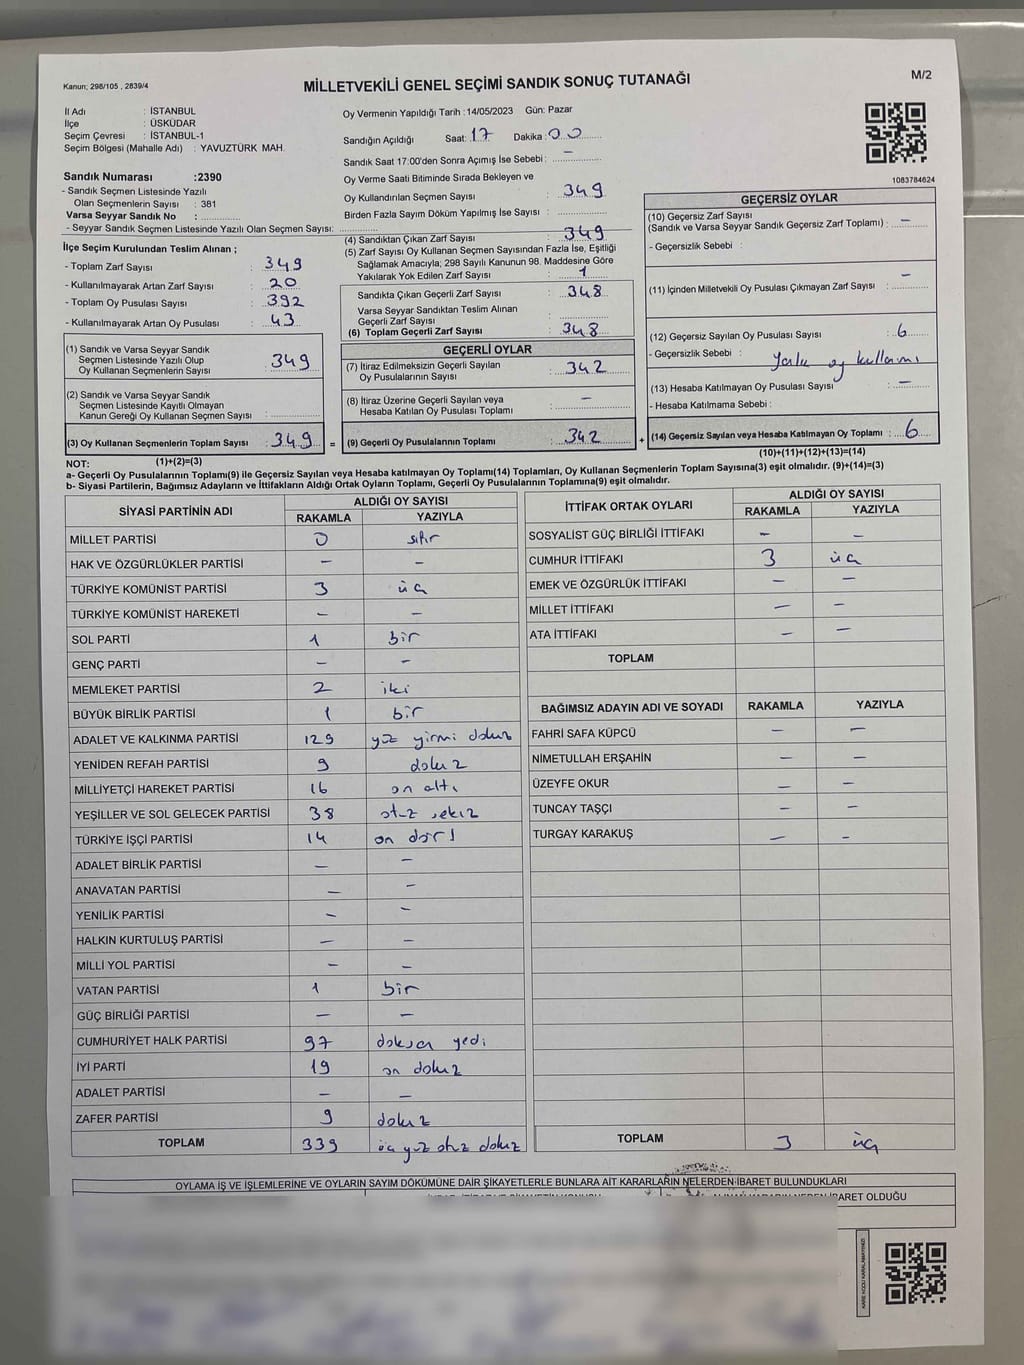 Kanun; 298/105 , 2839/4
MİLLETVEKİLİ GENEL SEÇİMİ SANDIK SONUÇ TUTANAĞI
M/2
İl Adı : İSTANBUL
İlçe : ÜSKÜDAR
Seçim Çevresi : İSTANBUL-1
Seçim Bölgesi (Mahalle Adı) : YAVUZTÜRK MAH.
Sandık Numarası :2390
- Sandık Seçmen Listesinde Yazılı
Olan Seçmenlerin Sayısı : 381
Varsa Seyyar Sandık No :
- Seyyar Sandık Seçmen Listesinde Yazılı Olan Seçmen Sayısı:
İlçe Seçim Kurulundan Teslim Alınan ;
- Toplam Zarf Sayısı : 349
- Kullanılmayarak Artan Zarf Sayısı : 20
- Toplam Oy Pusulası Sayısı : 392
- Kullanılmayarak Artan Oy Pusulası : 43
(1) Sandık ve Varsa Seyyar Sandık
Seçmen Listesinde Yazılı Olup
Oy Kullanan Seçmenlerin Sayısı : 349
(2) Sandık ve Varsa Seyyar Sandık
Seçmen Listesinde Kayıtlı Olmayan
Kanun Gereği Oy Kullanan Seçmen Sayısı :
(3) Oy Kullanan Seçmenlerin Toplam Sayısı : 349 =
Oy Vermenin Yapıldığı Tarih :14/05/2023 Gün: Pazar
Sandığın Açıldığı Saat: 17 Dakika : 00
Sandık Saat 17:00'den Sonra Açımış İse Sebebi : —
Oy Verme Saati Bitiminde Sırada Bekleyen ve
Oy Kullandırılan Seçmen Sayısı : 349
Birden Fazla Sayım Döküm Yapılmış İse Sayısı :
(4) Sandıktan Çıkan Zarf Sayısı : 349
(5) Zarf Sayısı Oy Kullanan Seçmen Sayısından Fazla İse, Eşitliği
Sağlamak Amacıyla; 298 Sayılı Kanunun 98. Maddesine Göre
Yakılarak Yok Edilen Zarf Sayısı : 1
Sandıkta Çıkan Geçerli Zarf Sayısı : 348
Varsa Seyyar Sandıktan Teslim Alınan
Geçerli Zarf Sayısı :
(6) Toplam Geçerli Zarf Sayısı : 348
GEÇERLİ OYLAR
(7) İtiraz Edilmeksizin Geçerli Sayılan
Oy Pusulalarının Sayısı : 342
(8) İtiraz Üzerine Geçerli Sayılan veya
Hesaba Katılan Oy Pusulası Toplamı : —
(9) Geçerli Oy Pusulalarının Toplamı : 342 +
1083784624
GEÇERSİZ OYLAR
(10) Geçersiz Zarf Sayısı
(Sandık ve Varsa Seyyar Sandık Geçersiz Zarf Toplamı) : —
- Geçersizlik Sebebi :
(11) İçinden Milletvekili Oy Pusulası Çıkmayan Zarf Sayısı : —
(12) Geçersiz Sayılan Oy Pusulası Sayısı : 6
- Geçersizlik Sebebi : oy kullanımı
(13) Hesaba Katılmayan Oy Pusulası Sayısı : —
- Hesaba Katılmama Sebebi :
(14) Geçersiz Sayılan veya Hesaba Katılmayan Oy Toplamı : 6
NOT: (1)+(2)=(3)
(10)+(11)+(12)+(13)=(14)
a- Geçerli Oy Pusulalarının Toplamı(9) ile Geçersiz Sayılan veya Hesaba katılmayan Oy Toplamı(14) Toplamları, Oy Kullanan Seçmenlerin Toplam Sayısına(3) eşit olmalıdır. (9)+(14)=(3)
b- Siyasi Partilerin, Bağımsız Adayların ve İttifakların Aldığı Ortak Oyların Toplamı, Geçerli Oy Pusulalarının Toplamına(9) eşit olmalıdır.
SİYASİ PARTİNİN ADI ALDIĞI OY SAYISI
RAKAMLA YAZIYLA
MİLLET PARTİSİ 0 sıfır
HAK VE ÖZGÜRLÜKLER PARTİSİ — —
TÜRKİYE KOMÜNİST PARTİSİ 3 üç
TÜRKİYE KOMÜNİST HAREKETİ — —
SOL PARTİ 1 bir
GENÇ PARTİ — —
MEMLEKET PARTİSİ 2 iki
BÜYÜK BİRLİK PARTİSİ 1 bir
ADALET VE KALKINMA PARTİSİ 129 yüz yirmi dokuz
YENİDEN REFAH PARTİSİ 9 dokuz
MİLLİYETÇİ HAREKET PARTİSİ 16 on altı
YEŞİLLER VE SOL GELECEK PARTİSİ 38 otuz sekiz
TÜRKİYE İŞÇİ PARTİSİ 14 on dört
ADALET BİRLİK PARTİSİ — —
ANAVATAN PARTİSİ — —
YENİLİK PARTİSİ — —
HALKIN KURTULUŞ PARTİSİ — —
MİLLİ YOL PARTİSİ — —
VATAN PARTİSİ 1 bir
GÜÇ BİRLİĞİ PARTİSİ — —
CUMHURİYET HALK PARTİSİ 97 doksan yedi
İYİ PARTİ 19 on dokuz
ADALET PARTİSİ — —
ZAFER PARTİSİ 9 dokuz
TOPLAM 339 üç yüz otuz dokuz
İTTİFAK ORTAK OYLARI ALDIĞI OY SAYISI
RAKAMLA YAZIYLA
SOSYALİST GÜÇ BİRLİĞİ İTTİFAKI — —
CUMHUR İTTİFAKI 3 üç
EMEK VE ÖZGÜRLÜK İTTİFAKI — —
MİLLET İTTİFAKI — —
ATA İTTİFAKI — —
TOPLAM
BAĞIMSIZ ADAYIN ADI VE SOYADI RAKAMLA YAZIYLA
FAHRİ SAFA KÜPCÜ — —
NİMETULLAH ERŞAHİN — —
ÜZEYFE OKUR — —
TUNCAY TAŞÇI — —
TURGAY KARAKUŞ — —
TOPLAM 3 üç
OYLAMA İŞ VE İŞLEMLERİNE VE OYLARIN SAYIM DÖKÜMÜNE DAİR ŞİKAYETLERLE BUNLARA AİT KARARLARIN NELERDEN İBARET BULUNDUKLARI
İBARET OLDUĞU
KARE KODU KARALAMAYINIZ!